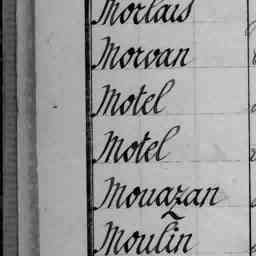 Morlais
Morvan
Motel
Motel
Mouazan
Moulin